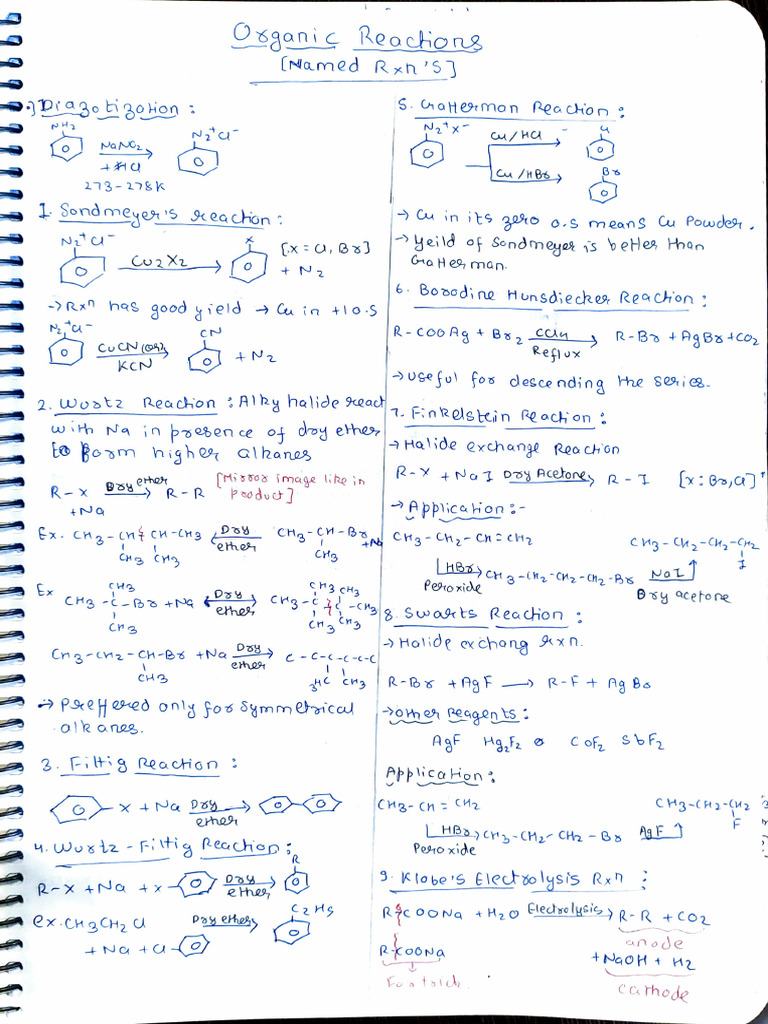 Organic Reactions
[Named Rxn's]
Diazotization :
NH2
NaNO2
+ HCl
273-278K
N2+Cl-
1. Sondmeyer's reaction :
N2+Cl-
Cu2X2
X
[X = Cl, Br]
+ N2
→ Rxn has good yield → Cu in +1 O.S
N2+Cl-
CuCN (or)
KCN
CN
+ N2
2. Wurtz Reaction : Alky halide react
with Na in presence of dry ether
to form higher alkanes
R-X
+Na
Dry ether
R-R
[Mirror image like in
product]
Ex. CH3-CH-CH-CH3
CH3 CH3
Dry
ether
CH3-CH-Br
+Na
CH3
Ex
CH3
CH3-C-Br + Na
CH3
Dry
ether
CH3 CH3
CH3-C-C-CH3
CH3 CH3
CH3-CH2-CH-Br + Na
CH3
Dry
ether
C-C-C-C-C-C
H3C CH3
→ Preffered only for symmetrical
alkanes.
3. Fittig Reaction :
X + Na
Dry
ether
4. Wurtz - Fittig Reaction :
R-X + Na + X
Dry
ether
R
ex. CH3CH2Cl
+ Na + Cl
Dry ether
C2H5
5. Gatterman Reaction :
N2+X-
Cu/HCl
Cl
Cu/HBr
Br
→ Cu in its zero o.s means Cu powder.
→ Yeild of Sondmeyer is better than
Gatterman.
6. Borodine Hunsdiecker Reaction :
R-COOAg + Br2
CCl4
Reflux
R-Br + AgBr + CO2
→ useful for descending the series.
7. Finkelstein Reaction :
→ Halide exchange Reaction
R-X + NaI
Dry Acetone
R-I
[X : Br, Cl]
→ Application :-
CH3-CH2-CH=CH2
HBr
Peroxide
CH3-CH2-CH2-CH2-Br
NaI
Dry acetone
CH3-CH2-CH2-CH2
I
8. Swarts Reaction :
→ Halide exchang rxn.
R-Br + AgF → R-F + AgBr
→ other reagents :
AgF Hg2F2 CoF2 SbF2
Application :
CH3-CH=CH2
HBr
Peroxide
CH3-CH2-CH2-Br
AgF
CH3-CH2-CH2
F
9. Klobe's Electrolysis Rxn :
R-COONa + H2O
Electrolysis
R-R + CO2
anode
R-COONa
+NaOH + H2
cathode